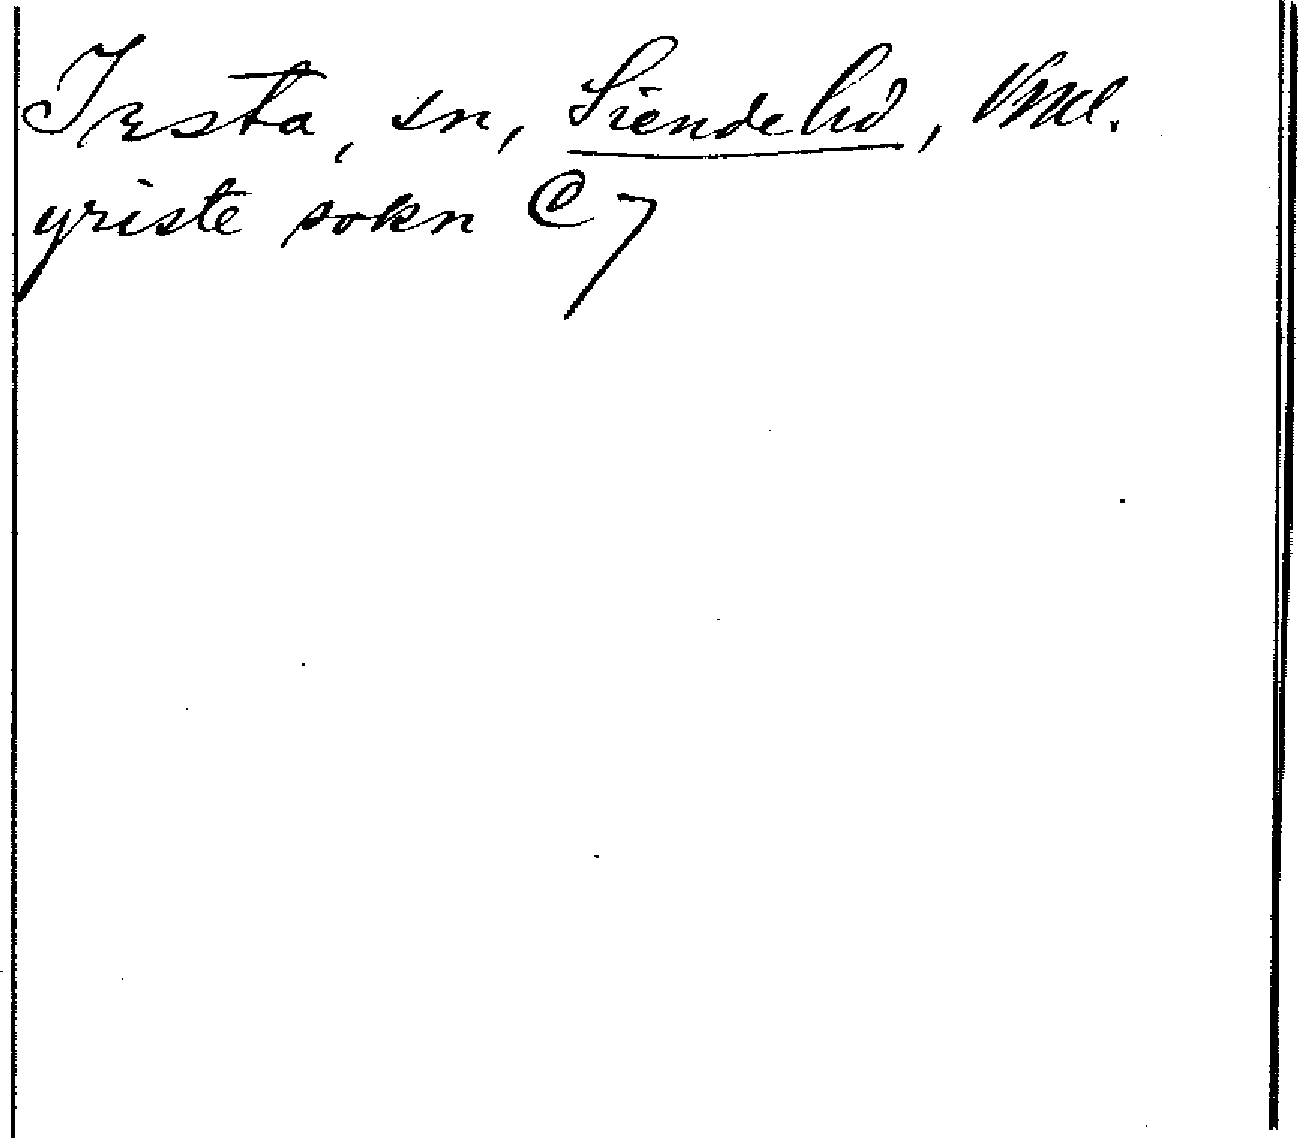 Irsta, sn, Siende hd, Vml.
yriste sokn C 7